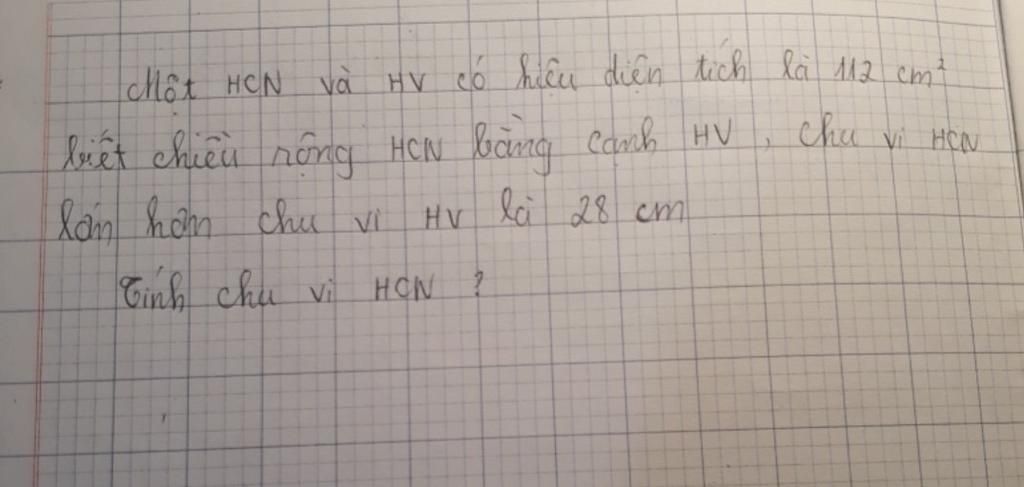 Một HCN và HV có hiệu diện tích là 112 cm²
biết chiều rộng HCN bằng cạnh HV, chu vi HCN
lớn hơn chu vi HV là 28 cm
Tính chu vi HCN ?